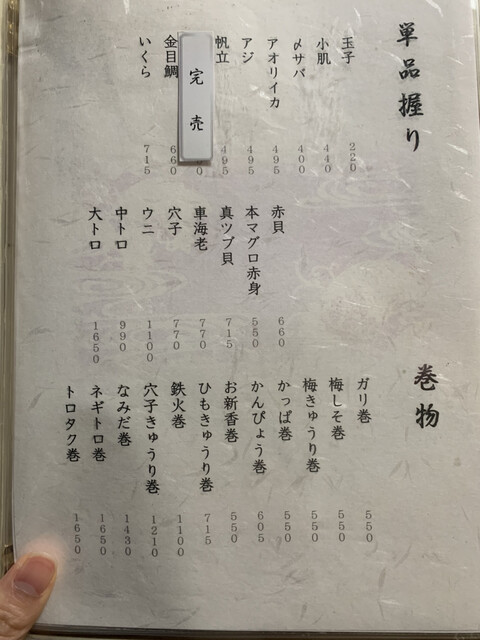 単品握り
玉子 220
小肌 440
〆サバ 400
アオリイカ 495
アジ 495
帆立 495
完売
金目鯛 660
いくら 715
赤貝 660
本マグロ赤身 550
真ツブ貝 715
車海老 770
穴子 770
ウニ 1100
中トロ 990
大トロ 1650
巻物
ガリ巻 550
梅しそ巻 550
梅きゅうり巻 550
かっぱ巻 550
かんぴょう巻 605
お新香巻 550
ひもきゅうり巻 715
鉄火巻 1100
穴子きゅうり巻 1210
なみだ巻 1430
ネギトロ巻 1650
トロタク巻 1650